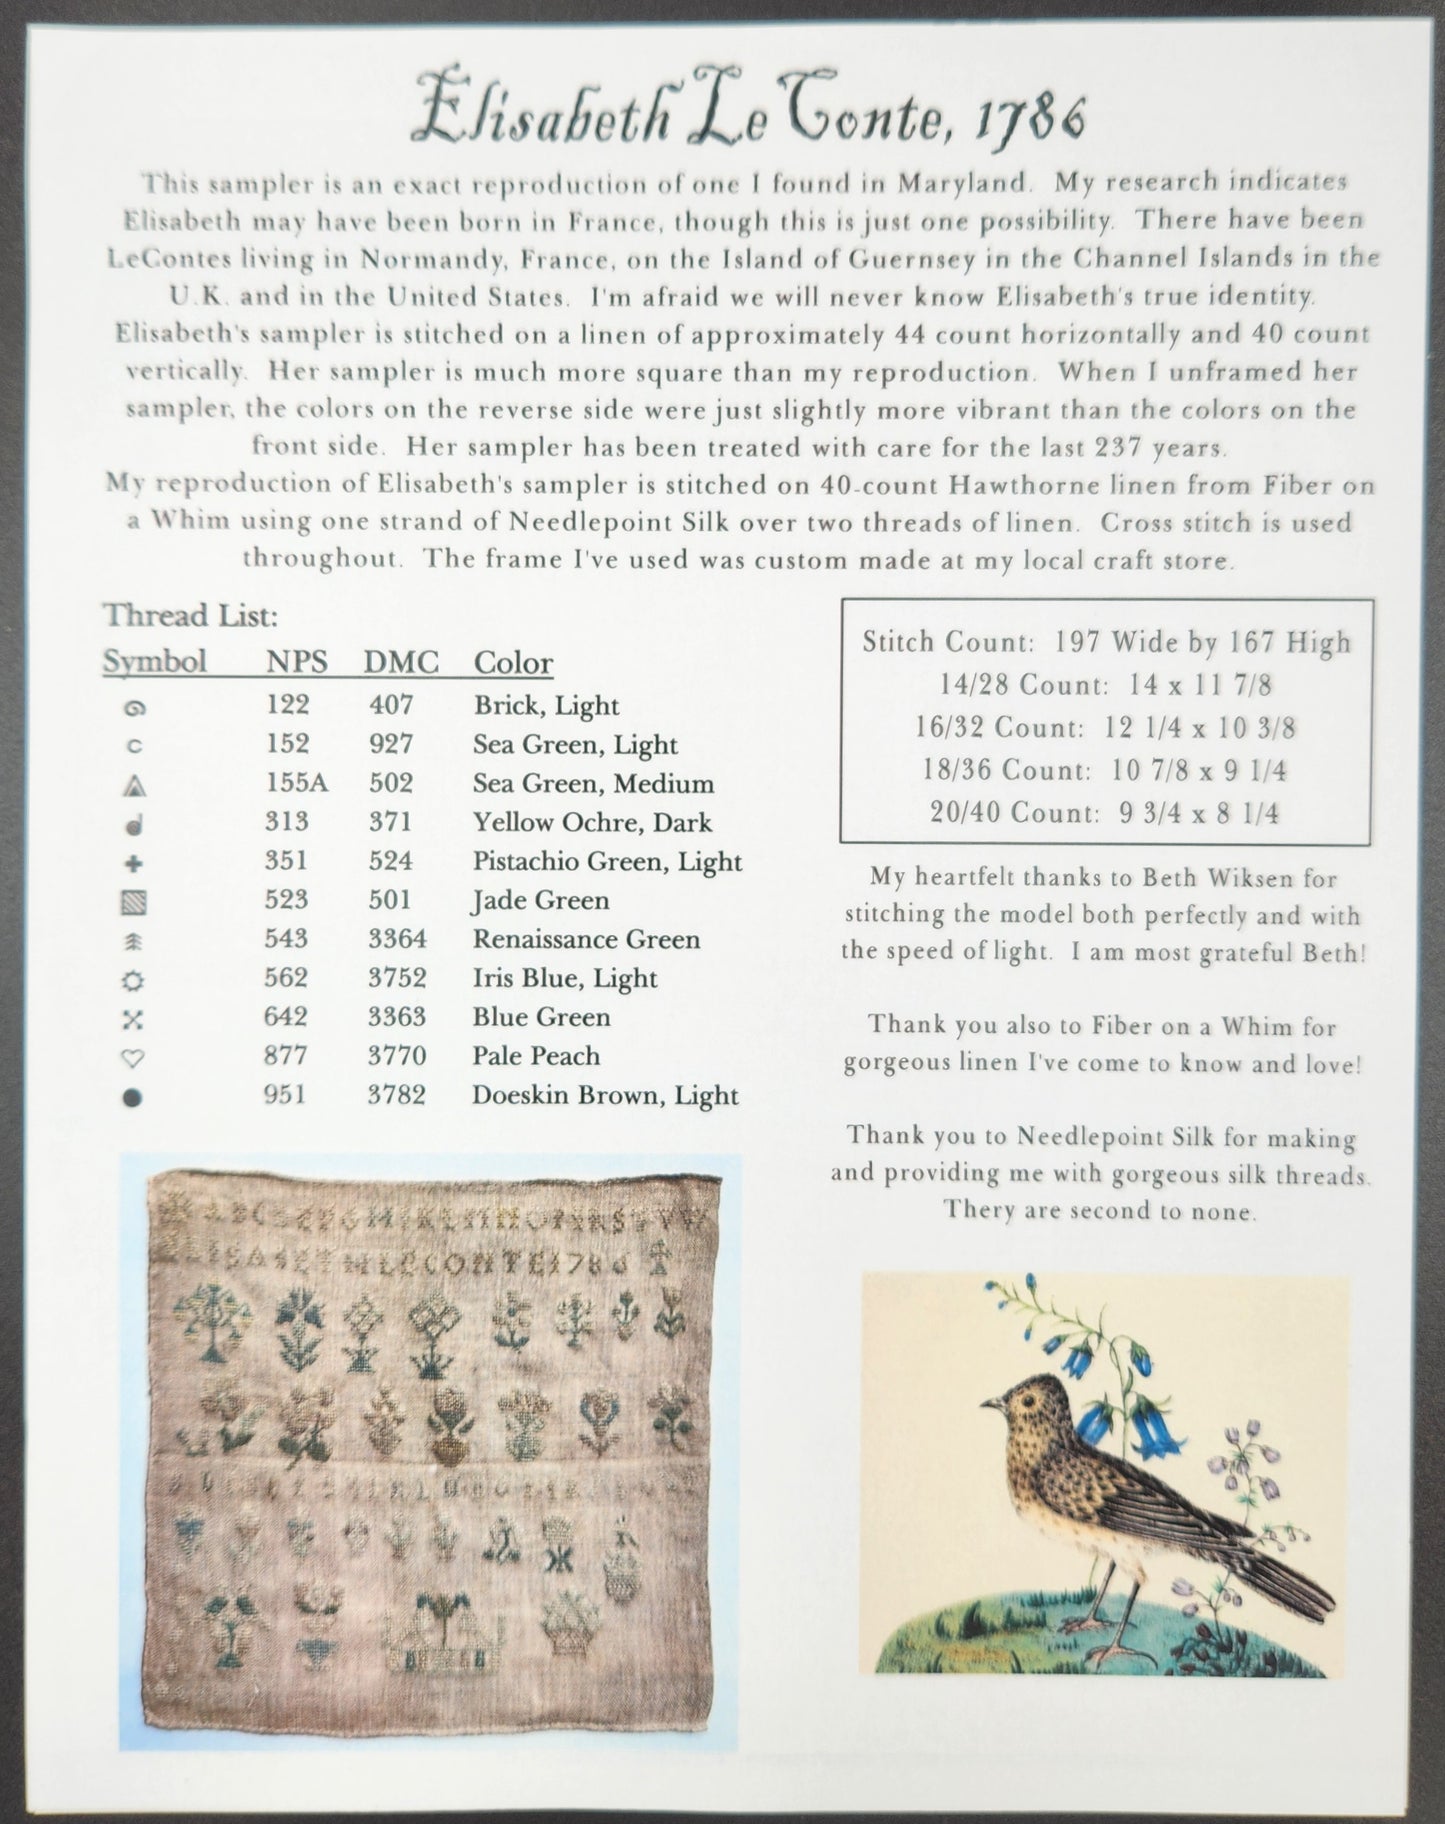 Elisabeth Le Conte, 1786
This sampler is an exact reproduction of one I found in Maryland. My research indicates
Elisabeth may have been born in France, though this is just one possibility. There have been
LeContes living in Normandy, France, on the Island of Guernsey in the Channel Islands in the
U.K. and in the United States. I'm afraid we will never know Elisabeth's true identity.
Elisabeth's sampler is stitched on a linen of approximately 44 count horizontally and 40 count
vertically. Her sampler is much more square than my reproduction. When I unframed her
sampler, the colors on the reverse side were just slightly more vibrant than the colors on the
front side. Her sampler has been treated with care for the last 237 years.
My reproduction of Elisabeth's sampler is stitched on 40-count Hawthorne linen from Fiber on
a Whim using one strand of Needlepoint Silk over two threads of linen. Cross stitch is used
throughout. The frame I've used was custom made at my local craft store.
Thread List:
Symbol NPS DMC Color
122 407 Brick, Light
c 152 927 Sea Green, Light
155A 502 Sea Green, Medium
313 371 Yellow Ochre, Dark
351 524 Pistachio Green, Light
523 501 Jade Green
543 3364 Renaissance Green
562 3752 Iris Blue, Light
642 3363 Blue Green
877 3770 Pale Peach
951 3782 Doeskin Brown, Light
Stitch Count: 197 Wide by 167 High
14/28 Count: 14 x 11 7/8
16/32 Count: 12 1/4 x 10 3/8
18/36 Count: 10 7/8 x 9 1/4
20/40 Count: 9 3/4 x 8 1/4
My heartfelt thanks to Beth Wiksen for
stitching the model both perfectly and with
the speed of light. I am most grateful Beth!
Thank you also to Fiber on a Whim for
gorgeous linen I've come to know and love!
Thank you to Needlepoint Silk for making
and providing me with gorgeous silk threads.
Thery are second to none.
ELISABETH LECONTE 1786